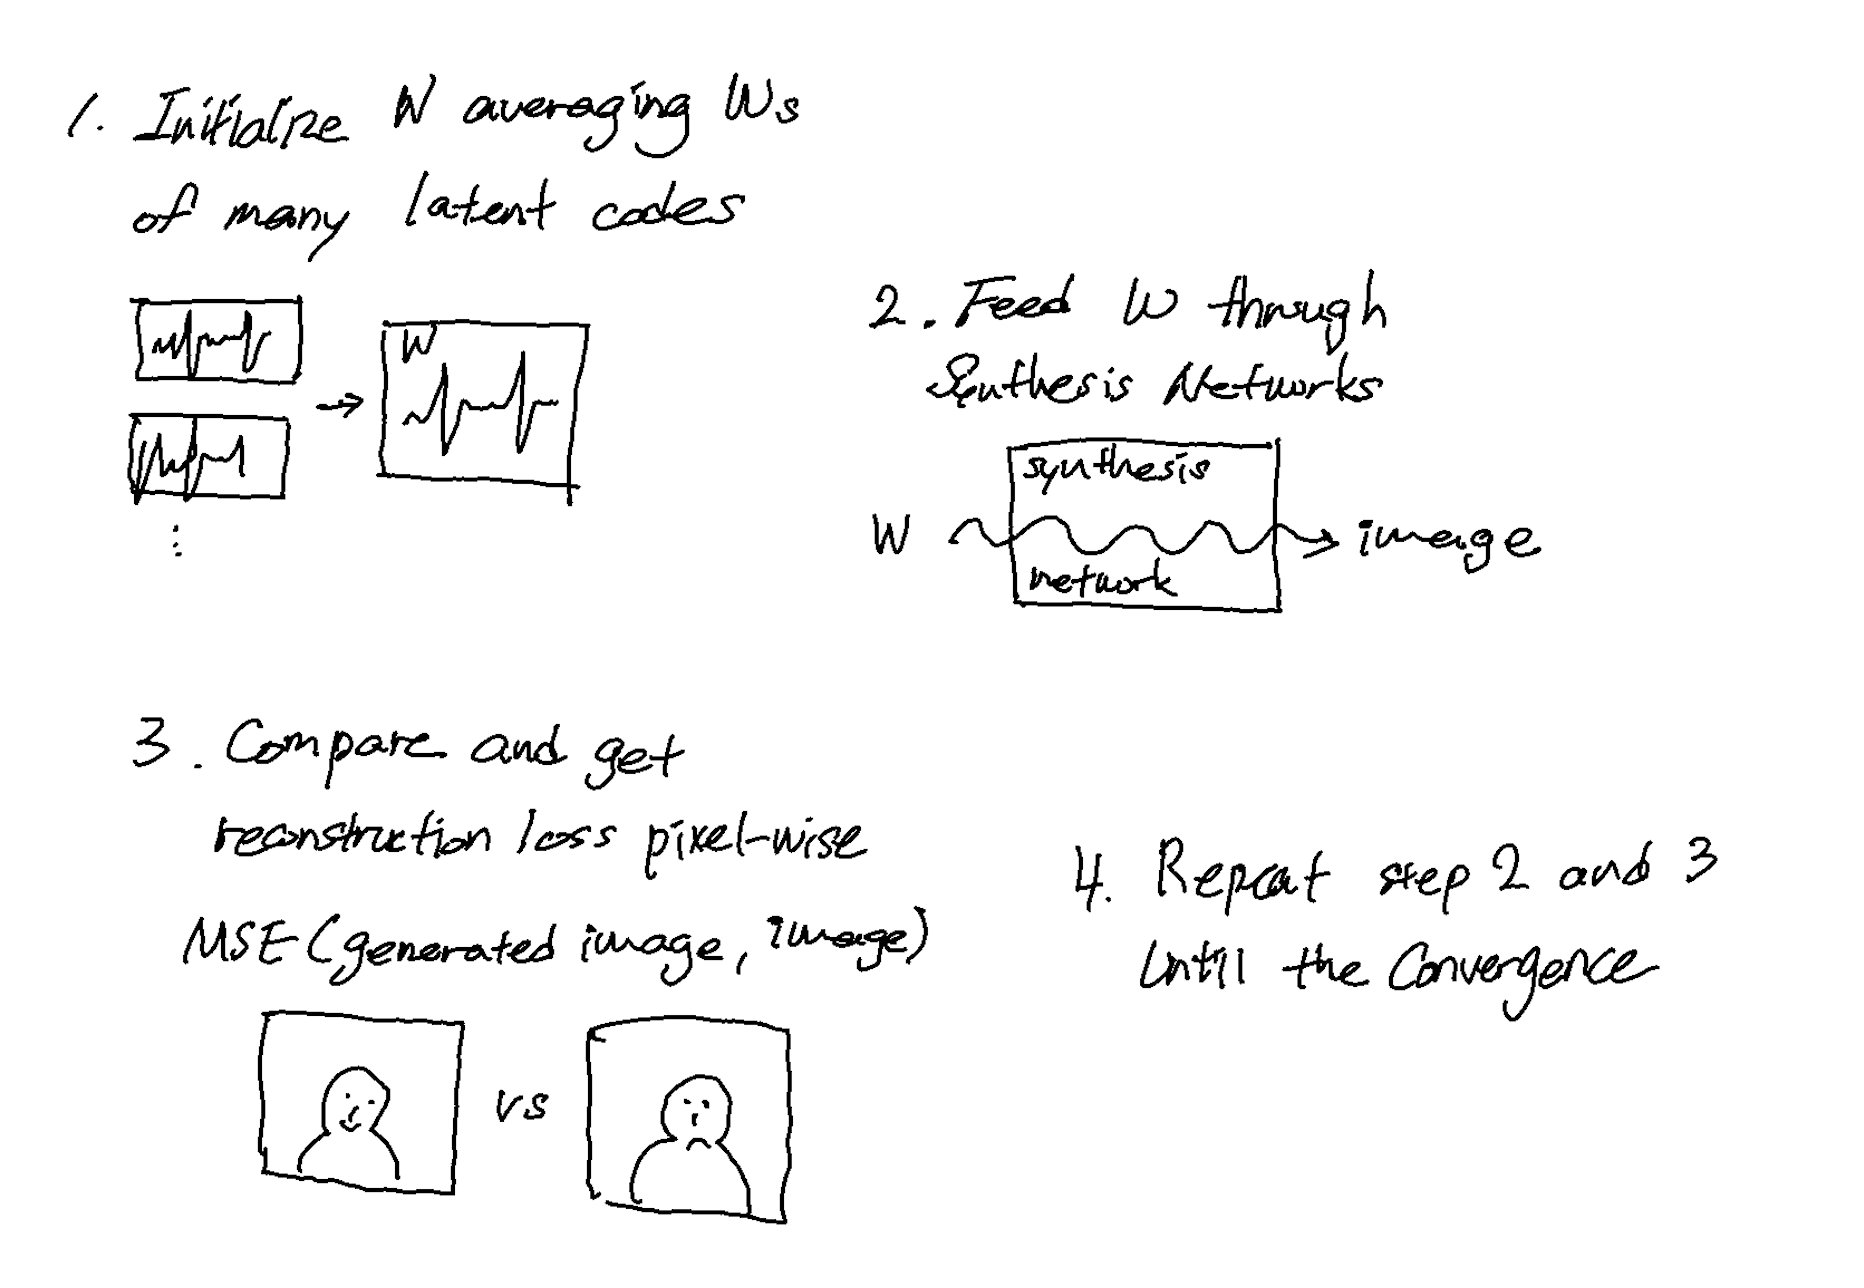 1. Initialize W averaging Ws
of many latent codes
W
2. Feed W through
Synthesis Networks
synthesis
W image
network
3. Compare and get
reconstruction loss pixel-wise
MSE (generated image, image)
vs
4. Repeat step 2 and 3
Untill the Convergence